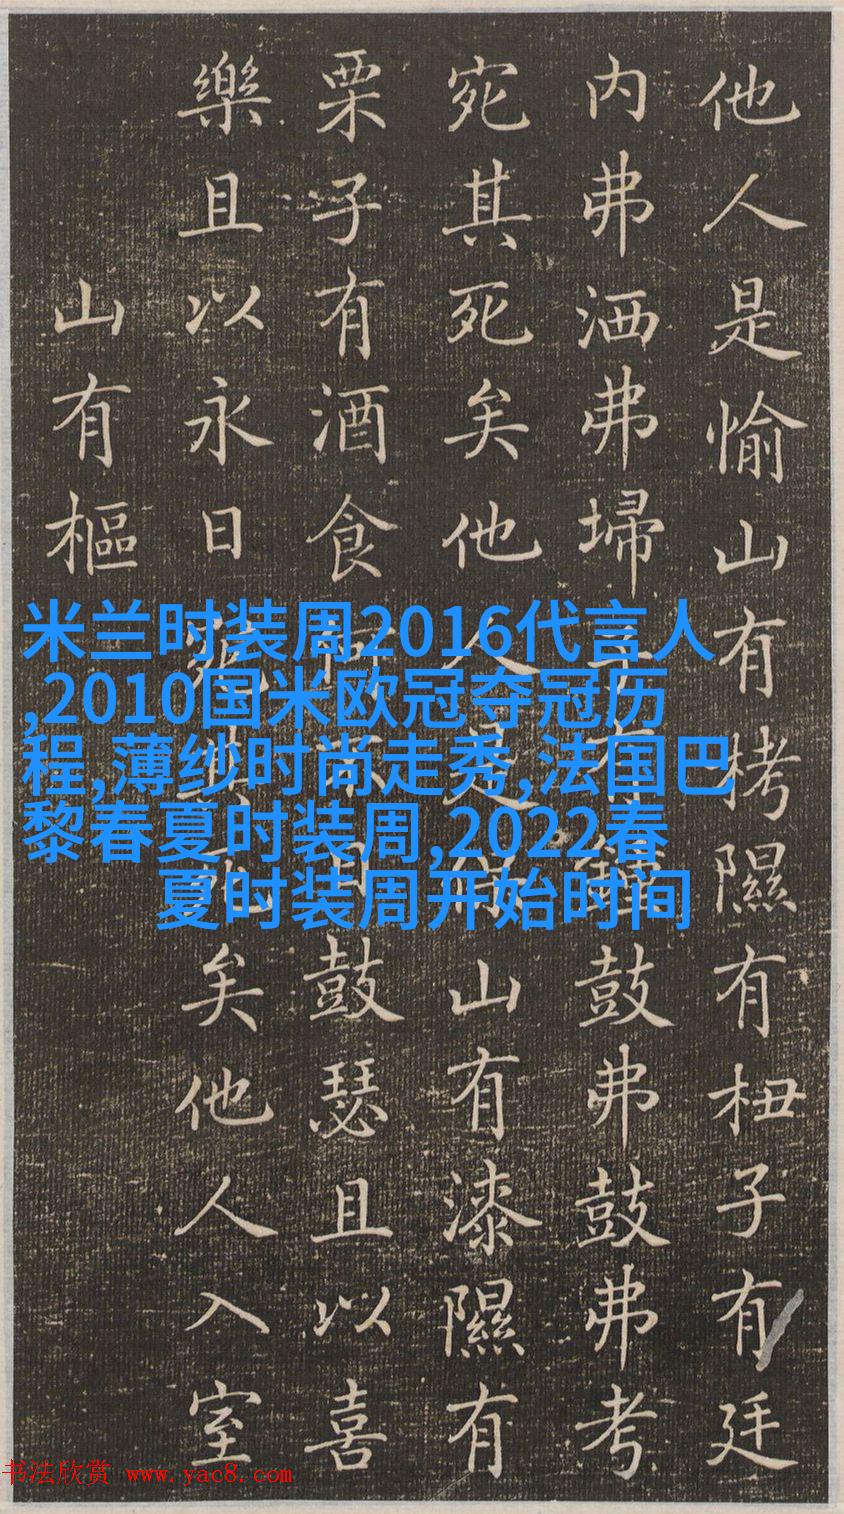 他人是愉山有栲隰有杻子有廷
内弗洒弗埽子有鍾鼓弗鼓弗考
宛其死矣他人是保山有漆隰有
栗子有酒食何不日鼓瑟且以喜
樂且以永日宛其死矣他人入室
山有樞
米兰时装周2016代言人
,2010国米欧冠夺冠历
程,薄纱时尚走秀,法国巴
黎春夏时装周,2022春
夏时装周开始时间
书法欣赏 www.yac8.com